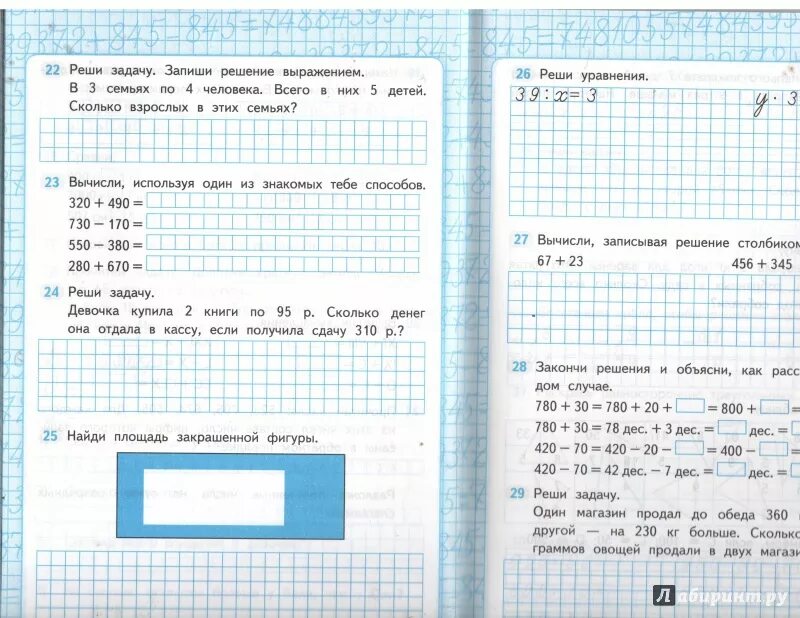 22 Реши задачу. Запиши решение выражением.
В 3 семьях по 4 человека. Всего в них 5 детей.
Сколько взрослых в этих семьях?
23 Вычисли, используя один из знакомых тебе способов.
320 + 490 =
730 − 170 =
550 − 380 =
280 + 670 =
24 Реши задачу.
Девочка купила 2 книги по 95 р. Сколько денег
она отдала в кассу, если получила сдачу 310 р.?
25 Найди площадь закрашенной фигуры.
26 Реши уравнения.
39 : x = 3 y · 3
27 Вычисли, записывая решение столбиком
67 + 23 456 + 345
28 Закончи решения и объясни, как расс
дом случае.
780 + 30 = 780 + 20 + = 800 + =
780 + 30 = 78 дес. + 3 дес. = дес. =
420 − 70 = 420 − 20 − = 400 − =
420 − 70 = 42 дес. − 7 дес. = дес. =
29 Реши задачу.
Один магазин продал до обеда 360
другой — на 230 кг больше. Сколько
граммов овощей продали в двух магази
Лабиринт.ру